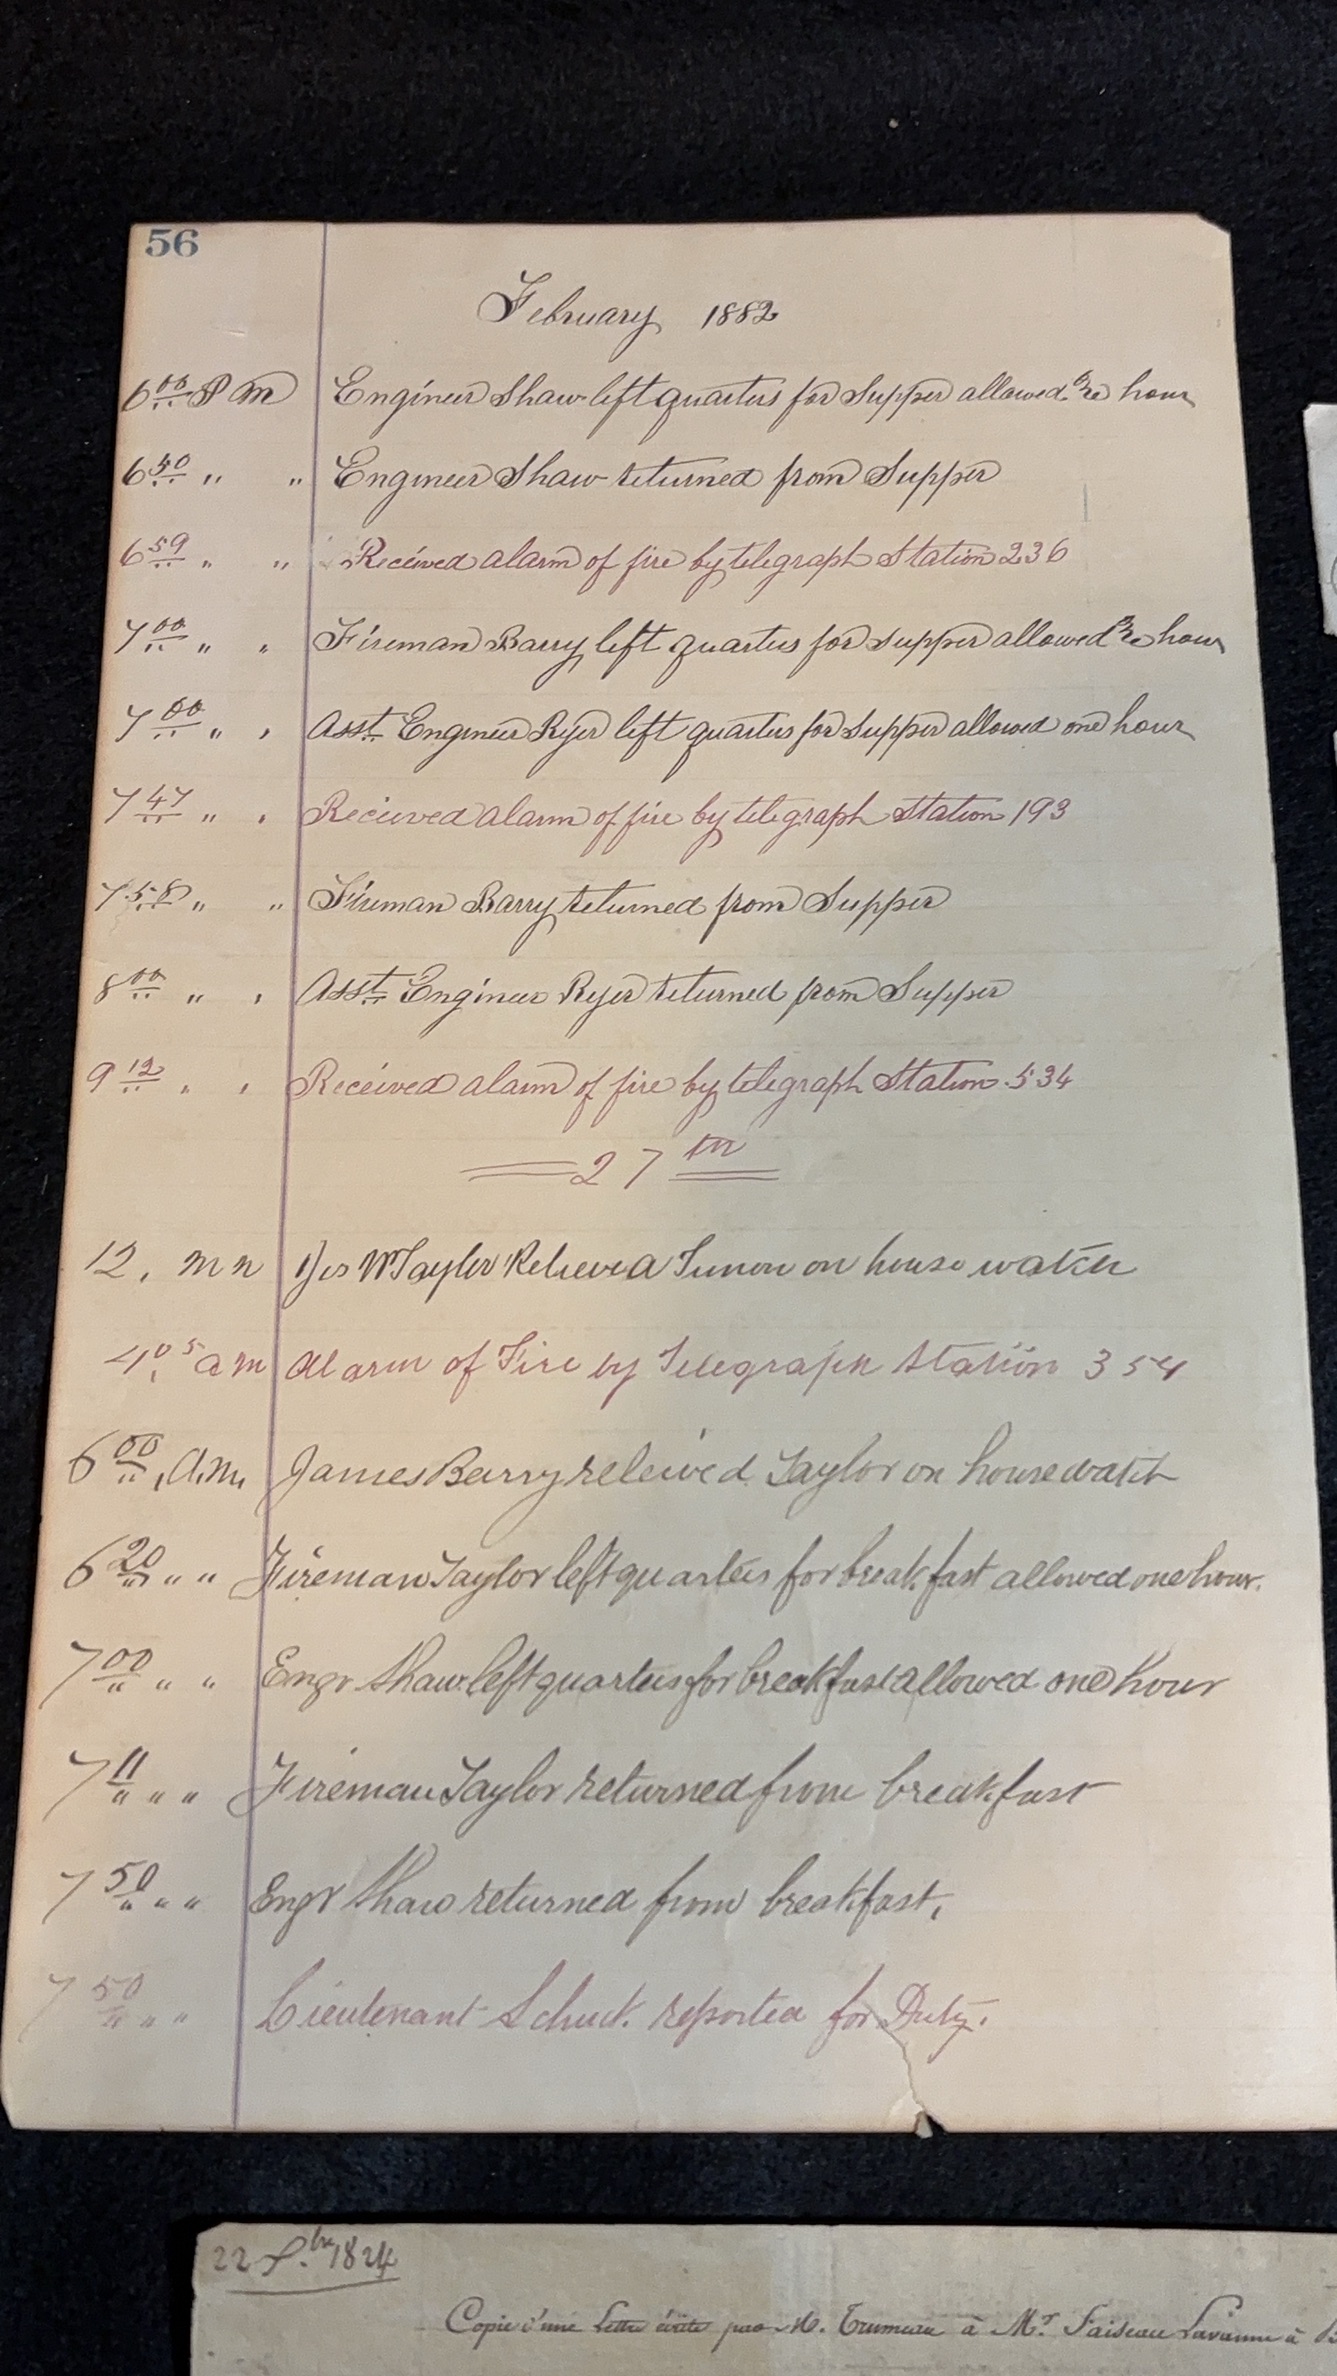 56
February 1882
6 00 P M Engineer Shaw left quarters for Supper allowed one hour
6 50 " " Engineer Shaw returned from Supper
6 59 " " Received alarm of fire by telegraph Station 236
7 00 " " Fireman Barry left quarters for supper allowed one hour
7 00 " " Asst Engineer Ryer left quarters for Supper allowed one hour
7 47 " " Recieved alarm of fire by telegraph Station 193
7 58 " " Fireman Barry returned from Supper
8 00 " " Asst Engineer Ryer returned from Supper
9 12 " " Received alarm of fire by telegraph Station 534
27 th
12, M N W Taylor Relieved on house watch
4 05 a m Alarm of Fire by Telegraph Station 354
6 00 A.M. James Barry releived Taylor on house watch
6 20 " " Fireman Taylor left quarters for breakfast allowed one hour.
7 00 " " Engr Shaw left quarters for breakfast allowed one hour
7 11 " " Fireman Taylor returned from breakfast
7 50 " " Engr Shaw returned from breakfast.
7 50 " " Lieutenant Schuck. reported for Duty.
22 1824
Copie d'une Lettre écrite par M. Trumeau à Mr. Faiseau Lavanne à